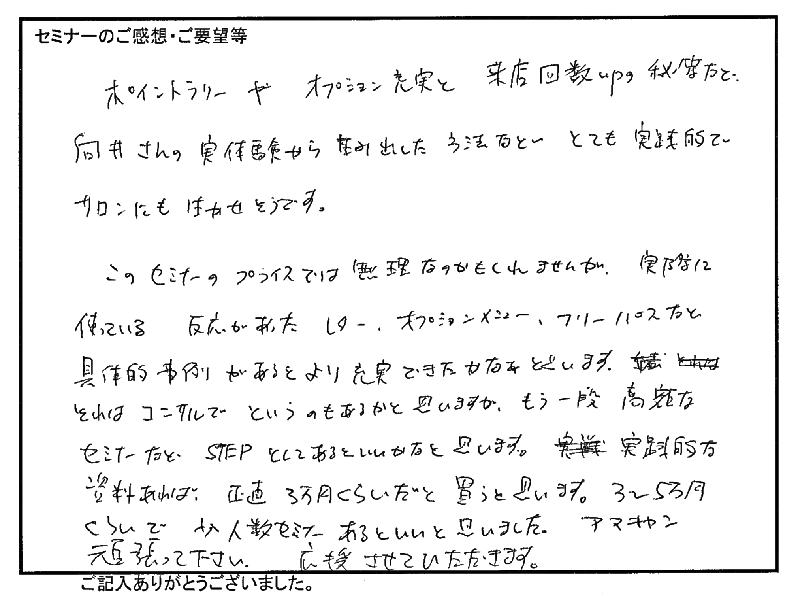 セミナーのご感想・ご要望等
ポイントラリーや オプション充実と 来店回数upの秘密など、
向井さんの実体験から 編み出した 方法などい とても 実践的で
サロンにも 活かせそうです。
このセミナーのプライスでは無理なのかもしれませんが、実際に
使っている 反応があった レター、オプションメニュー、フリーパスなど
具体的事例があるとより充実できたかなぁと思います。
それはコンサルで というのもあるかと思いますが、もう一段 高額な
セミナーなど STEPとしてあるといいかなと思います。 実践的な
資料あれば、正直 3万円くらいだと 買うと思います。3~5万円
くらいで 少人数セミナー あるといいと思いました。
頑張って下さい。 応援させていただきます。
ご記入ありがとうございました。